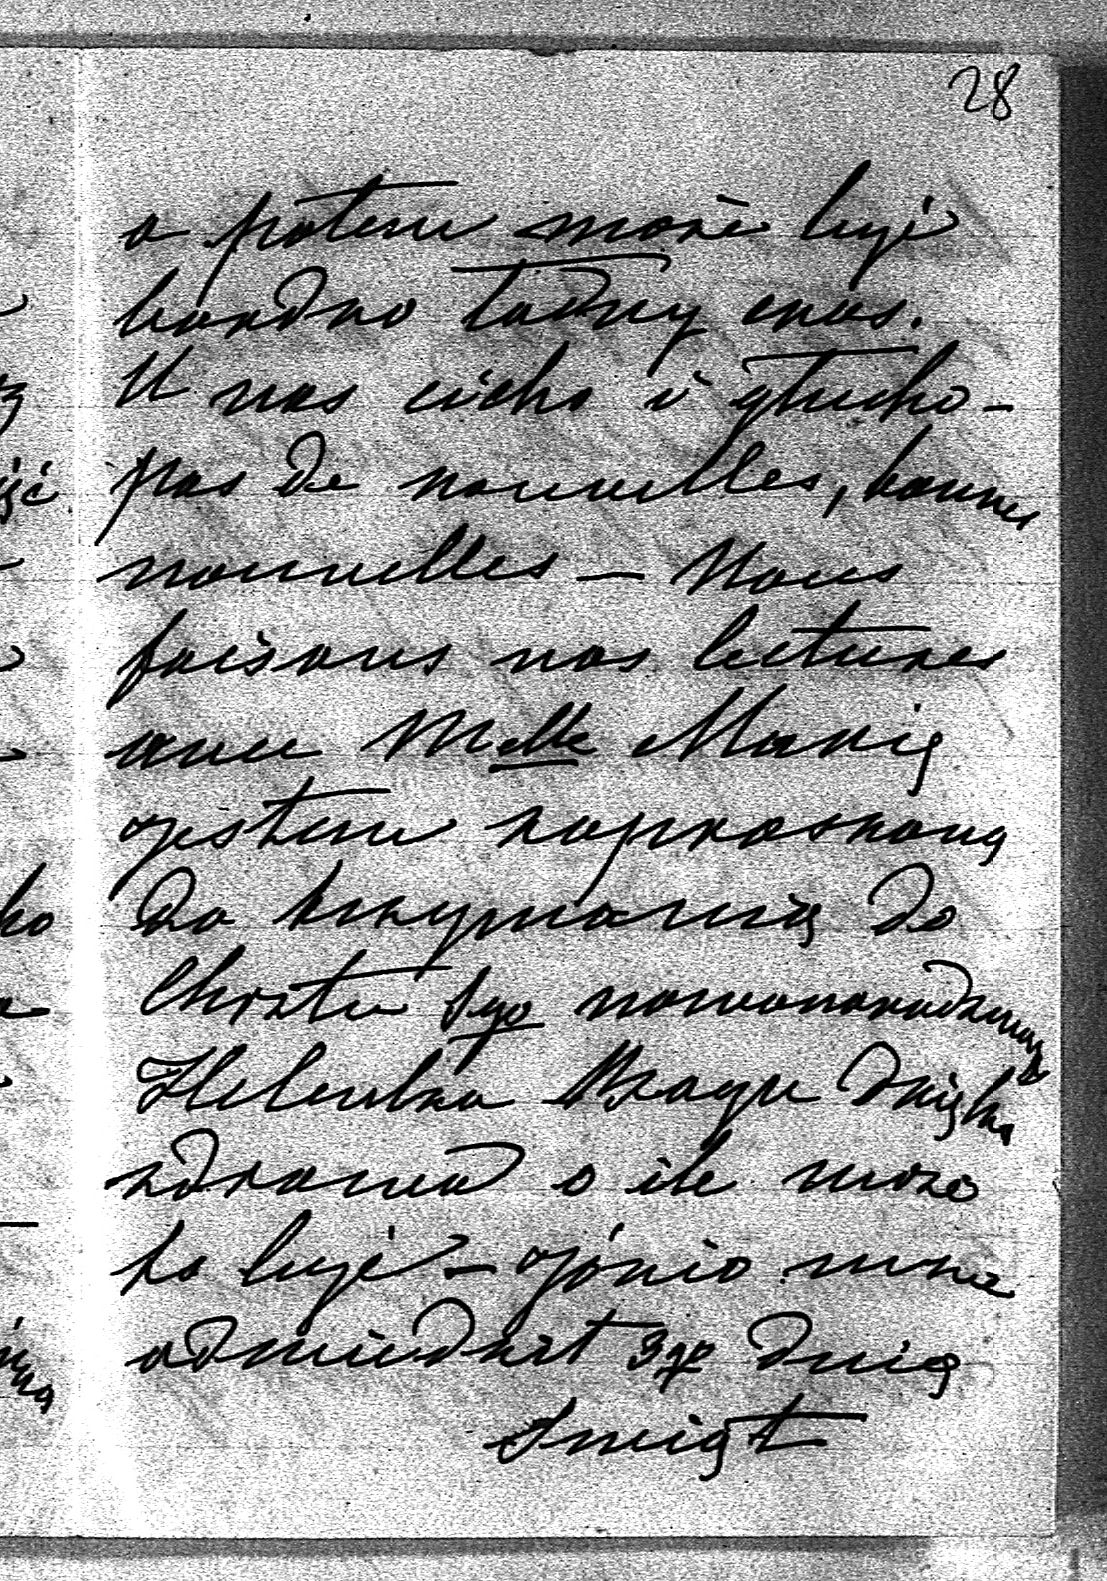 28
a potem może być
bardzo ładny czas.
U nas cicho i głucho –
pas de nouvelles, bonnes
nouvelles – Nous
faisons nos lectures
avec Melle Marią
jestem zaproszoną
do trzymania do
Chrztu 5go nowonarodzonego
Helenka Bragu Dzięka
zdrowa o ile może
to być – Józio mnie
odwiedzał 3go dnia
Świąt